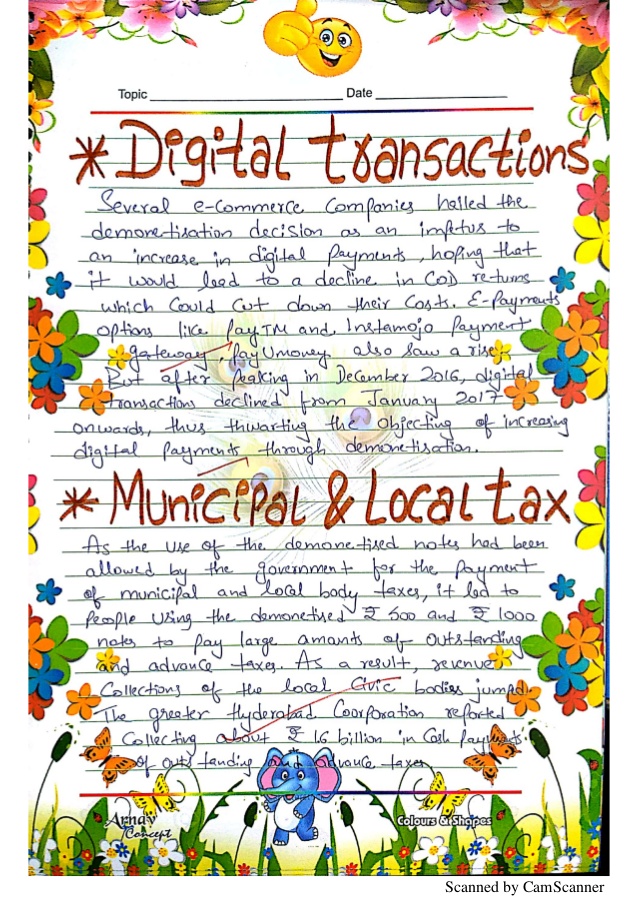 Topic Date
* Digital transactions
Several e-commerce Companies hailed the
demonetisation decision as an impetus to
an increase in digital payments, hoping that
it would lead to a decline in CoD returns
which Could Cut down their Costs. E-Payments
options like PayTM and Instamojo Payment
gateway, PayUmoney also saw a rise.
But after Peaking in December 2016, digital
transactions declined from January 2017
onwards, thus thwarting the objecting of increasing
digital Payments through demonetisation.
* Municipal & Local tax
As the use of the demonetised notes had been
allowed by the government for the payment
of municipal and local body taxes, it led to
People using the demonetised ₹ 500 and ₹ 1000
notes to pay large amants of outstanding
and advance taxes. As a result, revenue
Collections of the local Civic bodies jumped.
The greater Hyderabad Coorporation reported
Collecting about ₹ 16 billion in Cash payments
of outstanding and advance taxes
Arnav
Concept
Colours & Shapes
Scanned by CamScanner